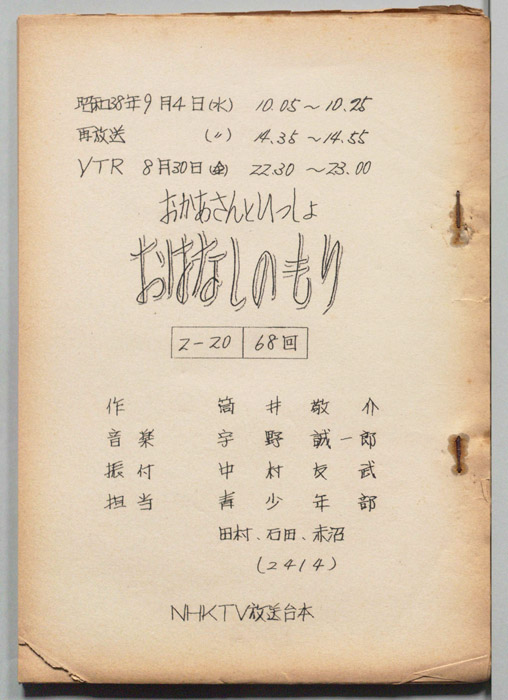 昭和38年9月4日(水) 10.05～10.25
再放送 (〃) 14.35～14.55
VTR 8月30日(金) 22.30～23.00
おかあさんといっしょ
おはなしのもり
2-20 68回
作 筒井敬介
音楽 宇野誠一郎
振付 中村友武
担当 青少年部
田村、石田、赤沼
(2414)
NHKTV放送台本